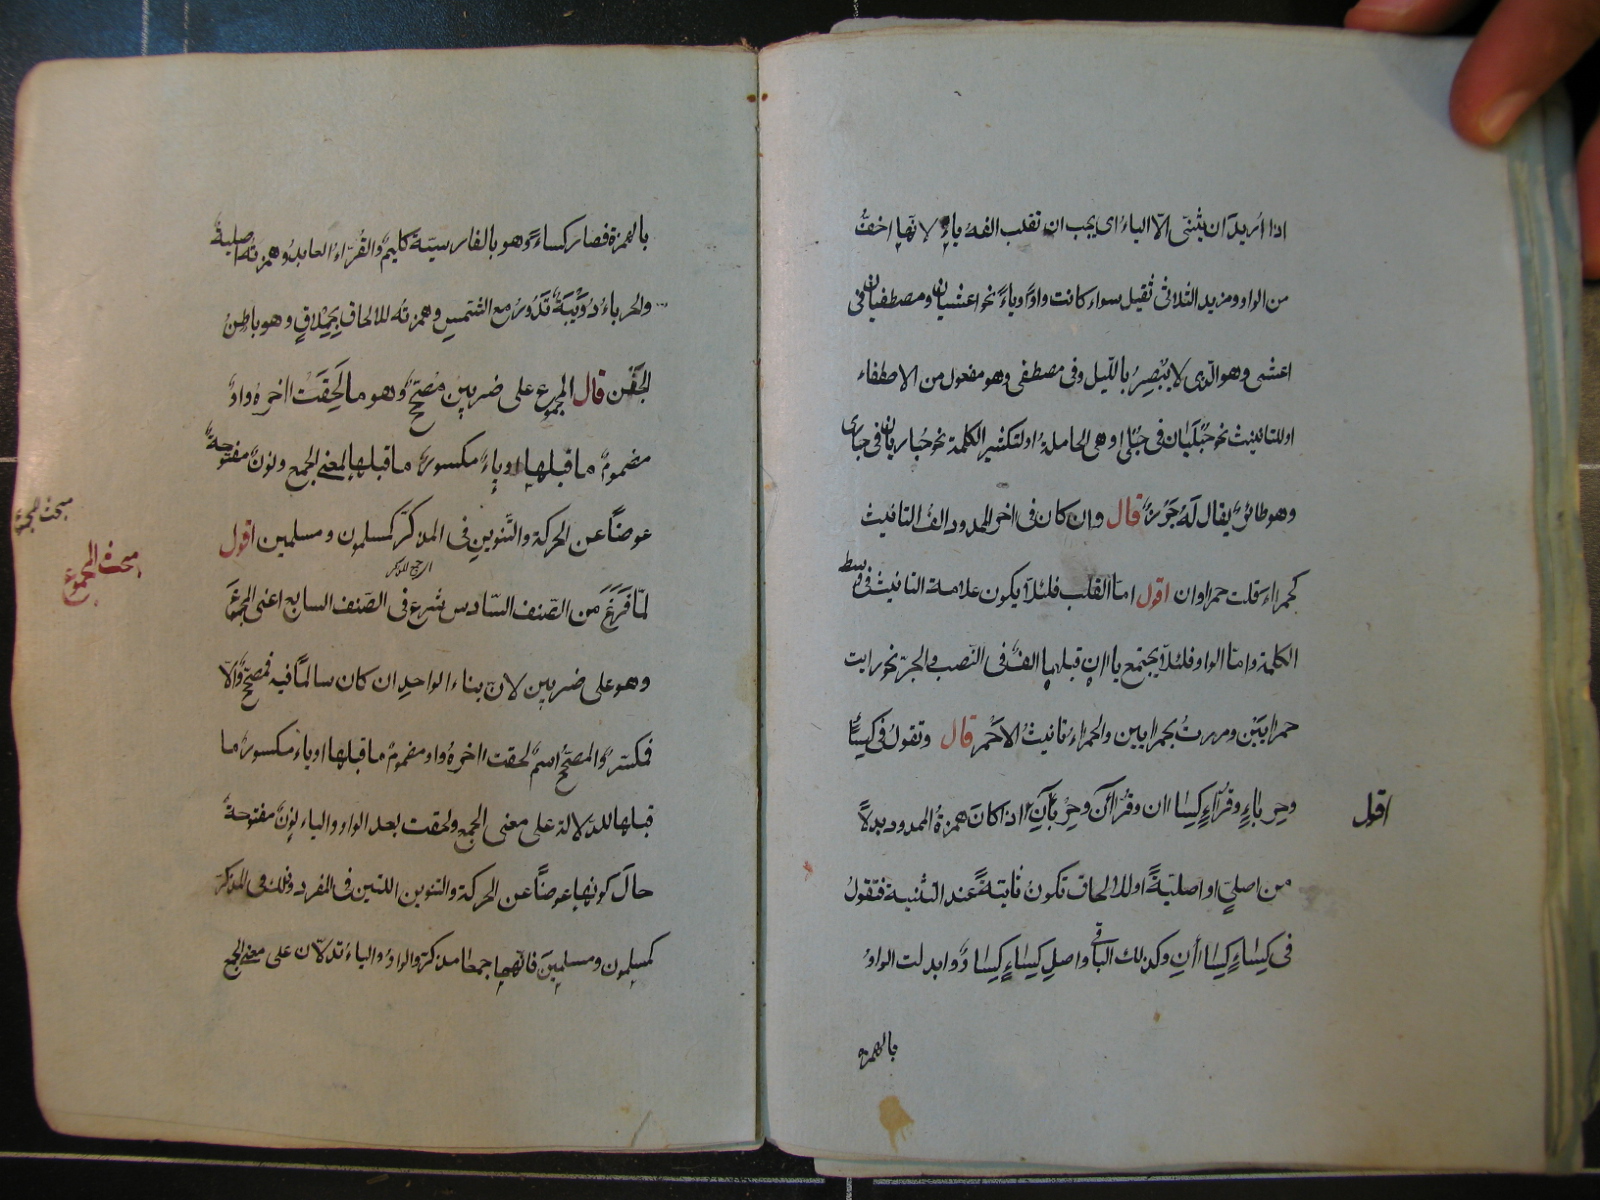 اذا اريد ان يثنى الا الياء اى يجب ان تقلب الفه ياء لانها اخف
من الواو ومزيد الثلاثى ثقيل سواء كانت واوا وياء نحو اعشيان ومصطفيان فى
اعشى وهو الذى لا يبصر بالليل وفى مصطفى وهو مفعول من الاصطفاء
او للتانيث نحو حبليان فى حبلى وهى الحاملة او لتكثير الكلمة نحو حباريان فى حبارى
وهو طائر يقال له جرز قال وان كان فى اخر الممدود الف التانيث
كحمراء قلت حمراوان اقول اما القلب فلئلا يكون علامة التانيث فى وسط
الكلمة واما الواو فلئلا يجتمع ياان قبلهما الف فى النصب والجر نحو رايت
حمرايين ومررت بحمرايين والحمراء تانيث الاحمر قال وتقول فى كساء
وحرباء وقراء كساان وقراان وحرباان اذا كان همزة الممدود بدلا
اقول
من اصلى او اصلية او للالحاق تكون ثابتة عند التثنية فتقول
فى كساء كساأن وكذلك الباقى واصل كساء كساو وابدلت الواو
بالهمزة
بالهمزة فصار كساء وهو بالفارسية كليم والقراء العابد وهمزته اصلية
والحرباء دويبة تدور مع الشمس وهمزته للالحاق بحملاق وهو باطن
الجفن قال المجموع على ضربين مصحح وهو ما لحقت اخره واو
مضموم ما قبلها او ياء مكسور ما قبلها لمعنى الجمع ونون مفتوحة
عوضا عن الحركة والتنوين فى المذكر كمسلمون ومسلمين اقول
مبحث المجموع
لما فرغ من الصنف السادس شرع فى الصنف السابع اعنى المجموع
وهو على ضربين لان بناء الواحد ان كان سالما فيه فمصحح والا
فمكسر والمصحح اسم لحقت اخره واو مضموم ما قبلها او ياء مكسور ما
قبلها للدلالة على معنى الجمع ولحقت بعد الواو والياء نون مفتوحة
حال كونها عوضا عن الحركة والتنوين اللتين فى المفرد وذلك فى المذكر
كمسلمون ومسلمين فانهما جمعا مذكر والواو والياء تدلان على معنى الجمع